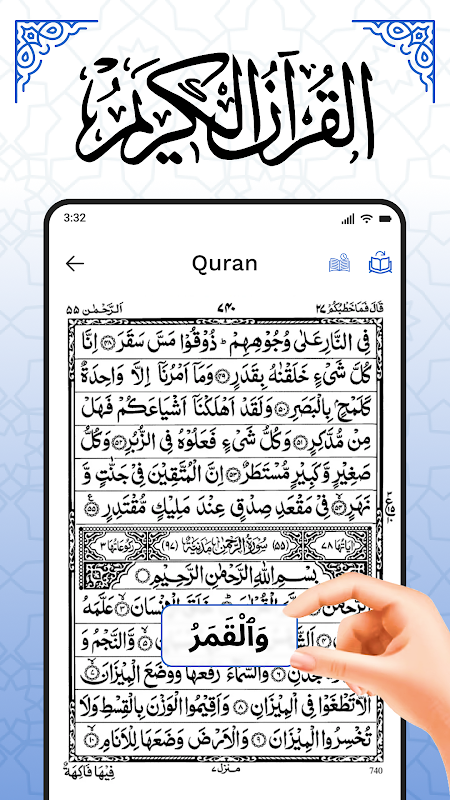 القرآن الكريم
3:32
Quran
قَالَ فَمَا خَطْبُكُمْ ٢٧
٧٤٠
اَلرَّحْمٰن ٥٥
فِی النَّارِ عَلٰی وُجُوْهِهِمْ ؕ ذُوْقُوْا مَسَّ سَقَرَ ﴿۴۸﴾ اِنَّا
كُلَّ شَیْءٍ خَلَقْنٰهُ بِقَدَرٍ ﴿۴۹﴾ وَمَاۤ اَمْرُنَاۤ اِلَّا وَاحِدَةٌ
كَلَمْحٍۭ بِالْبَصَرِ ﴿۵۰﴾ وَلَقَدْ اَهْلَكْنَاۤ اَشْیَاعَكُمْ فَهَلْ
مِنْ مُّدَّكِرٍ ﴿۵۱﴾ وَكُلُّ شَیْءٍ فَعَلُوْهُ فِی الزُّبُرِ ﴿۵۲﴾ وَكُلُّ
صَغِیْرٍ وَّكَبِیْرٍ مُّسْتَطَرٌ ﴿۵۳﴾ اِنَّ الْمُتَّقِیْنَ فِیْ جَنّٰتٍ وَّ
نَهَرٍ ﴿۵۴﴾ فِیْ مَقْعَدِ صِدْقٍ عِنْدَ مَلِیْكٍ مُّقْتَدِرٍ ﴿۵۵﴾
اٰیَاتُهَا ٧٨ (۵۵) سُوْرَةُ الرَّحْمٰنِ مَدَنِیَّةٌ (۹۷) رُكُوْعَاتُهَا ٣
بِسْمِ اللّٰهِ الرَّحْمٰنِ الرَّحِیْمِ
اَلرَّحْمٰنُ ﴿۱﴾ خَلَقَ الْاِنْسَانَ ﴿۳﴾ عَلَّمَهُ
وَالْقَمَرُ
وَّالنَّجْمُ وَ
وَالسَّمَآءَ رَفَعَهَا وَوَضَعَ الْمِیْزَانَ ﴿۷﴾
اَلَّا تَطْغَوْا فِی الْمِیْزَانِ ﴿۸﴾ وَاَقِیْمُوا الْوَزْنَ بِالْقِسْطِ وَلَا
تُخْسِرُوا الْمِیْزَانَ ﴿۹﴾ وَالْاَرْضَ وَضَعَهَا لِلْاَنَامِ ﴿۱۰﴾
فِیْهَا فَاكِهَةٌ
منزل ٧
740